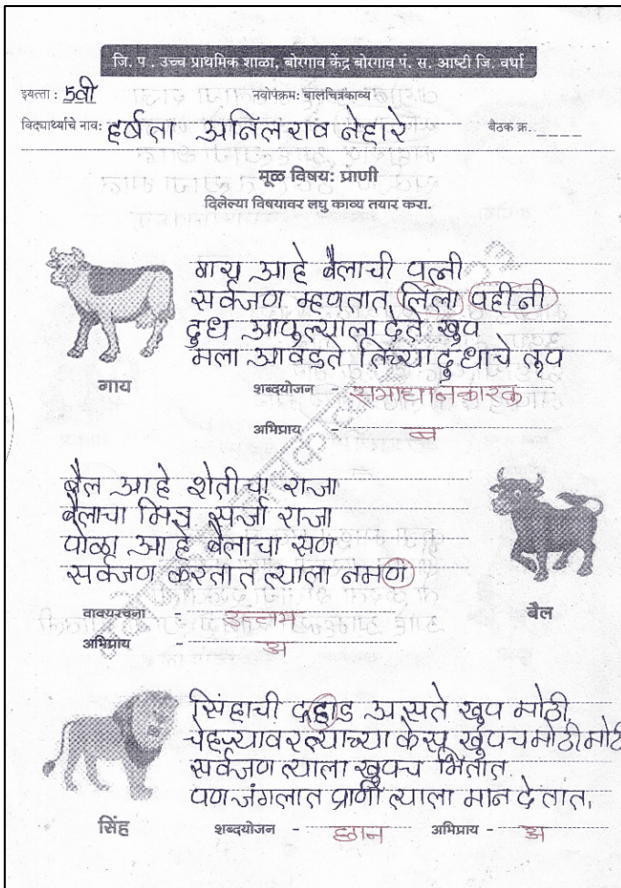 जि. प., उच्च प्राथमिक शाळा, बोरगाव केंद्र बोरगाव पं. स. आष्टी जि. वर्धा
इयत्ता : 5वी नवोपक्रम: बालचित्रकाव्य
विद्यार्थ्याचे नाव: हर्षता अनिलराव नेहारे बैठक क्र.
मूळ विषय: प्राणी
दिलेल्या विषयावर लघु काव्य तयार करा.
गाय आहे बैलाची पत्नी
सर्वजण म्हणतात तिला वहीनी
दुध आपुल्याला देते खुप
मला आवडते तिच्या दुधाचे तूप
गाय शब्दयोजन - समाधानकारक
अभिप्राय - ब
बैल आहे शेतीचा राजा
बैलाचा मित्र सर्जा राजा
पोळा आहे बैलाचा सण
सर्वजण करतात त्याला नमण
वाक्यरचना - उत्तम
बैल
अभिप्राय - अ
सिंहाची दहाड असते खुप मोठी
चेहऱ्यावर त्याच्या केस खुपच मोठी मोठी
सर्वजण त्याला खुपच भितात.
पण जंगलात प्राणी त्याला मान देतात.
सिंह शब्दयोजन - छान अभिप्राय - अ